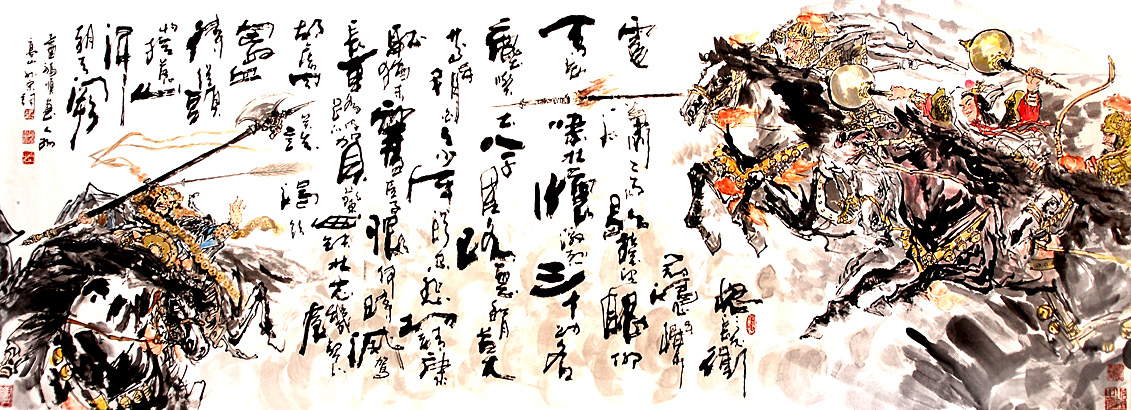 怒髮衝
冠憑欄
處瀟瀟雨歇擡望眼仰
天長嘯壯懷激烈三十功名
塵與土八千里路雲和月莫
等閒白了少年頭空悲切靖康
恥猶未雪臣子恨何時滅駕
長車踏破賀蘭山缺壯志飢餐
胡虜肉笑談渴飲
匈奴血
待從頭
收拾舊山
河
朝天闕